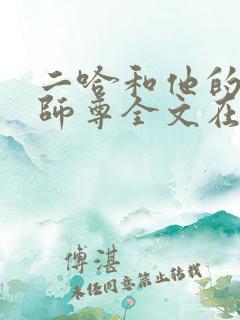 二哈和他的
師尊全文在
傅湛
未经同意禁止转载